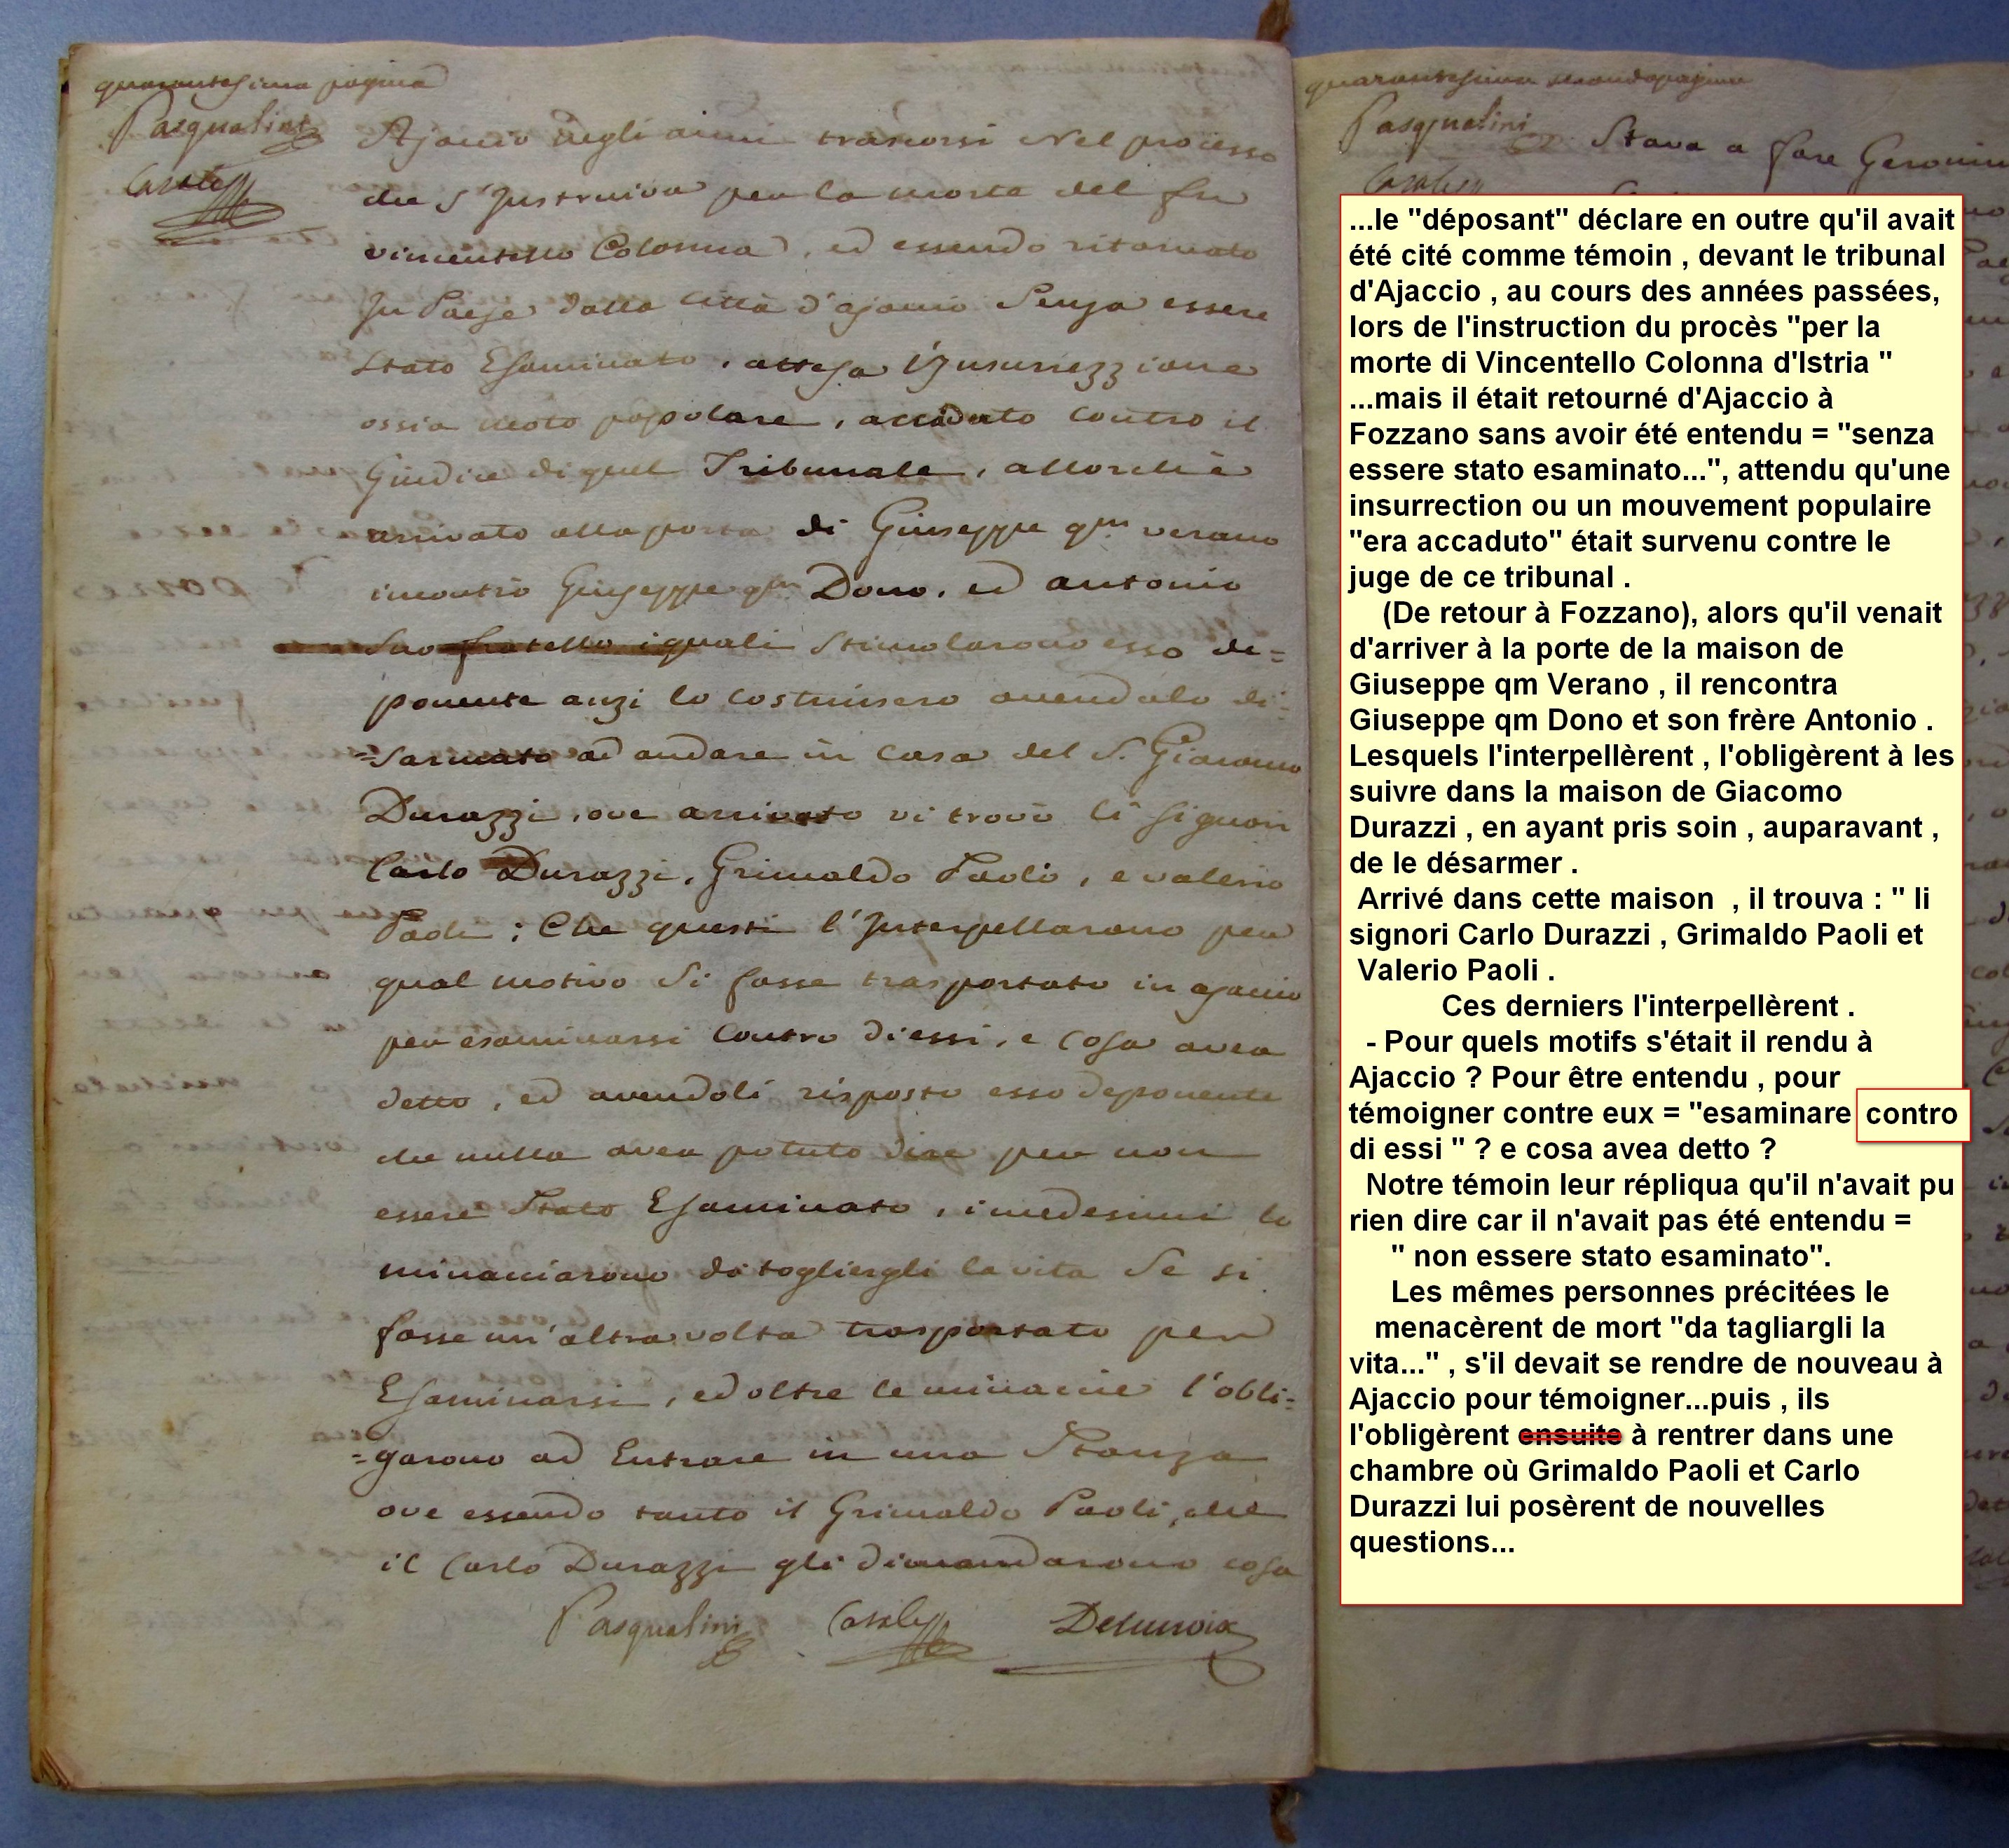 quarantesima pagina
Pasqualini
Casale
Ajaccio negli anni trascorsi nel processo
che s'Instruiva per la morte del fu
vincentello Colonna, ed essendo ritornato
In Paese dalla Città d'ajaccio Senza essere
Stato Esaminato, attesa l'Insurrezzione
ossia moto popolare, accaduto contro il
Giudice di quel Tribunale, allorchè
arrivato alla porta di Giuseppe qm verano
incontrò Giuseppe qm Dono, ed antonio
Suo fratello i quali Stimolarono esso de=
ponente anzi lo costrinsero avendolo di=
=sarmato ad andare in casa del S. Giacomo
Durazzi, ove arrivato vi trovò li Signori
Carlo Durazzi, Grimaldo Paoli, e valerio
Paoli; Che questi l'Interpellarono per
qual motivo Si fosse trasportato in ajaccio
per esaminarsi Contro di essi, e Cosa avea
detto, ed avendoli risposto esso deponente
che nulla avea potuto dire per non
essere Stato Esaminato, i medesimi lo
minacciarono di togliergli la vita Se si
fosse un'altra volta trasportato per
Esaminarsi, ed oltre le minaccie l'obli=
=garono ad Entrare in una Stanza
ove essendo tanto il Grimaldo Paoli, che
il Carlo Durazzi gli dimandarono cosa
Pasqualini Casale Delacroix
quarantesima secondapagina
Pasqualini
Casale
Stava a fare
...le "déposant" déclare en outre qu'il avait
été cité comme témoin , devant le tribunal
d'Ajaccio , au cours des années passées,
lors de l'instruction du procès "per la
morte di Vincentello Colonna d'Istria "
...mais il était retourné d'Ajaccio à
Fozzano sans avoir été entendu = "senza
essere stato esaminato...", attendu qu'une
insurrection ou un mouvement populaire
"era accaduto" était survenu contre le
juge de ce tribunal .
(De retour à Fozzano), alors qu'il venait
d'arriver à la porte de la maison de
Giuseppe qm Verano , il rencontra
Giuseppe qm Dono et son frère Antonio .
Lesquels l'interpellèrent , l'obligèrent à les
suivre dans la maison de Giacomo
Durazzi , en ayant pris soin , auparavant ,
de le désarmer .
Arrivé dans cette maison , il trouva : " li
signori Carlo Durazzi , Grimaldo Paoli et
Valerio Paoli .
Ces derniers l'interpellèrent .
- Pour quels motifs s'était il rendu à
Ajaccio ? Pour être entendu , pour
témoigner contre eux = "esaminare contro
di essi " ? e cosa avea detto ?
Notre témoin leur répliqua qu'il n'avait pu
rien dire car il n'avait pas été entendu =
" non essere stato esaminato".
Les mêmes personnes précitées le
menacèrent de mort "da tagliargli la
vita..." , s'il devait se rendre de nouveau à
Ajaccio pour témoigner...puis , ils
l'obligèrent ensuite à rentrer dans une
chambre où Grimaldo Paoli et Carlo
Durazzi lui posèrent de nouvelles
questions...